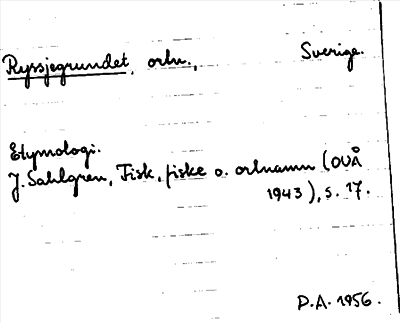 Ryssjegrundet, ortn., Sverige.
Etymologi.
J. Sahlgren, Fisk, fiske o. ortnamn (OUÅ
1943), s. 17.
D.A. 1956.